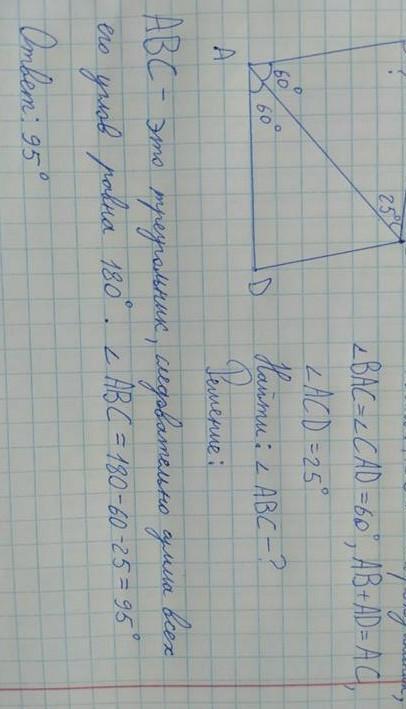 ∠BAC=∠CAD=60°, AB+AD=AC,
∠ACD=25°
Найти: ∠ABC-?
Решение:
?
60°
60°
25°
A
D
ABC - это треугольник, следовательно сумма всех
его углов равна 180°. ∠ABC=180-60-25=95°
Ответ: 95°